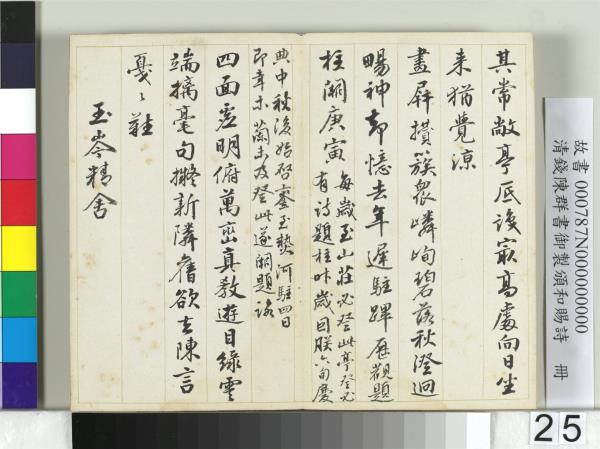 其常敞亭辰後最高處向日坐
来猶覺涼
畫屏攢簇衆嶙峋碧落秋澄迥
暢神却憶去年遲駐蹕歷觀題
柱闕庚寅
每歲至山莊必登此亭登必
有詩題柱昨歲因朕六旬慶
典中秋後始啓鑾至熱河駐四日
即幸木蘭未及登此遂闕題詠
四面虛明俯萬巒真教遊目緑雲
端摛毫句擬新隣舊欲去陳言
戞戞難
玉岑精舍
故書 000787N000000000
清錢陳群書御製頒和賜詩 冊
25